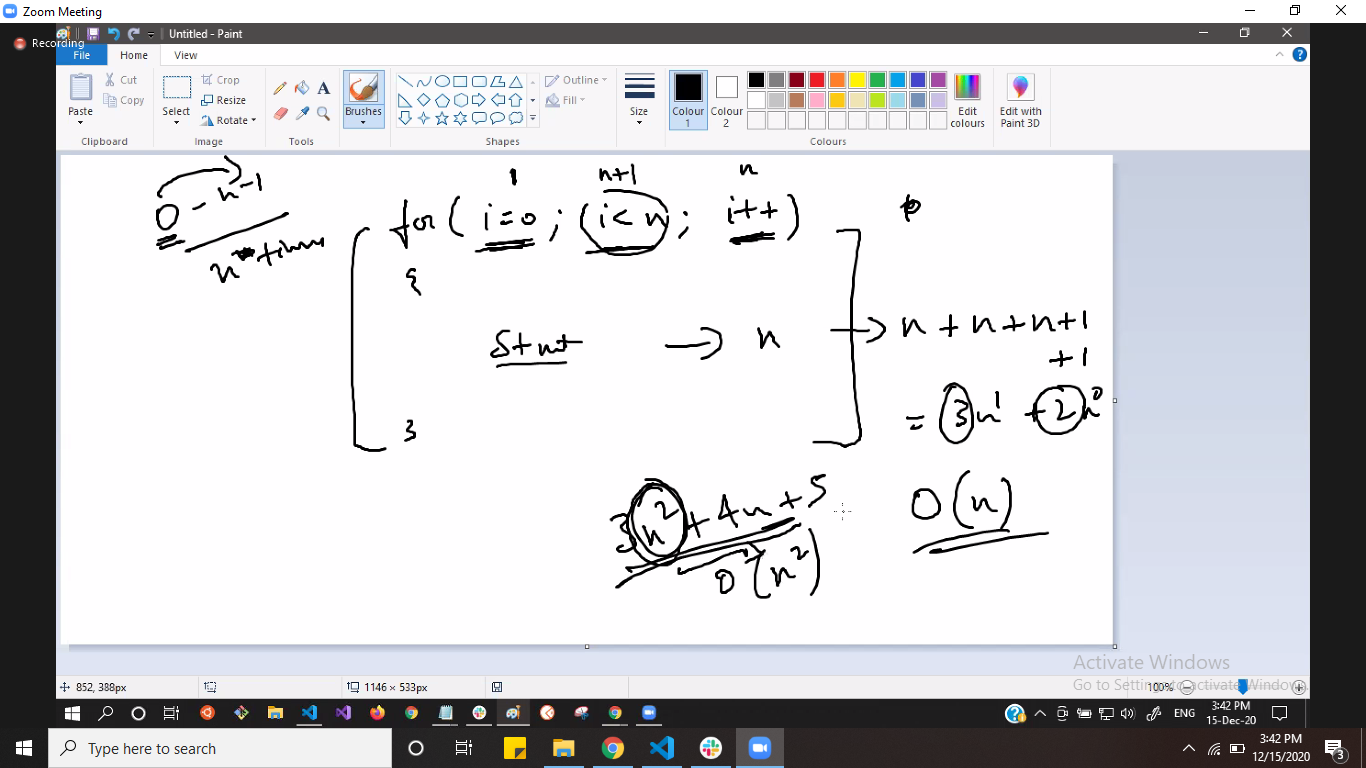 Zoom Meeting
Recording
Untitled - Paint
File Home View
Paste
Cut
Copy
Clipboard
Select
Crop
Resize
Rotate
Image
Tools
Brushes
Shapes
Outline
Fill
Size
Colour 1
Colour 2
Colours
Edit colours
Edit with Paint 3D
0 - n-1
n times
1 n+1 n
for ( i=0 ; ( i< n ; i++ )
{
Stmt → n
}
→ n + n + n+1
+1
= 3n¹ + 2n⁰
O(n)
3n² + 4n + 5
O(n²)
Activate Windows
Go to Settings to activate Windows.
852, 388px
1146 × 533px
100%
ENG
3:42 PM
15-Dec-20
Type here to search
3:42 PM
12/15/2020
3